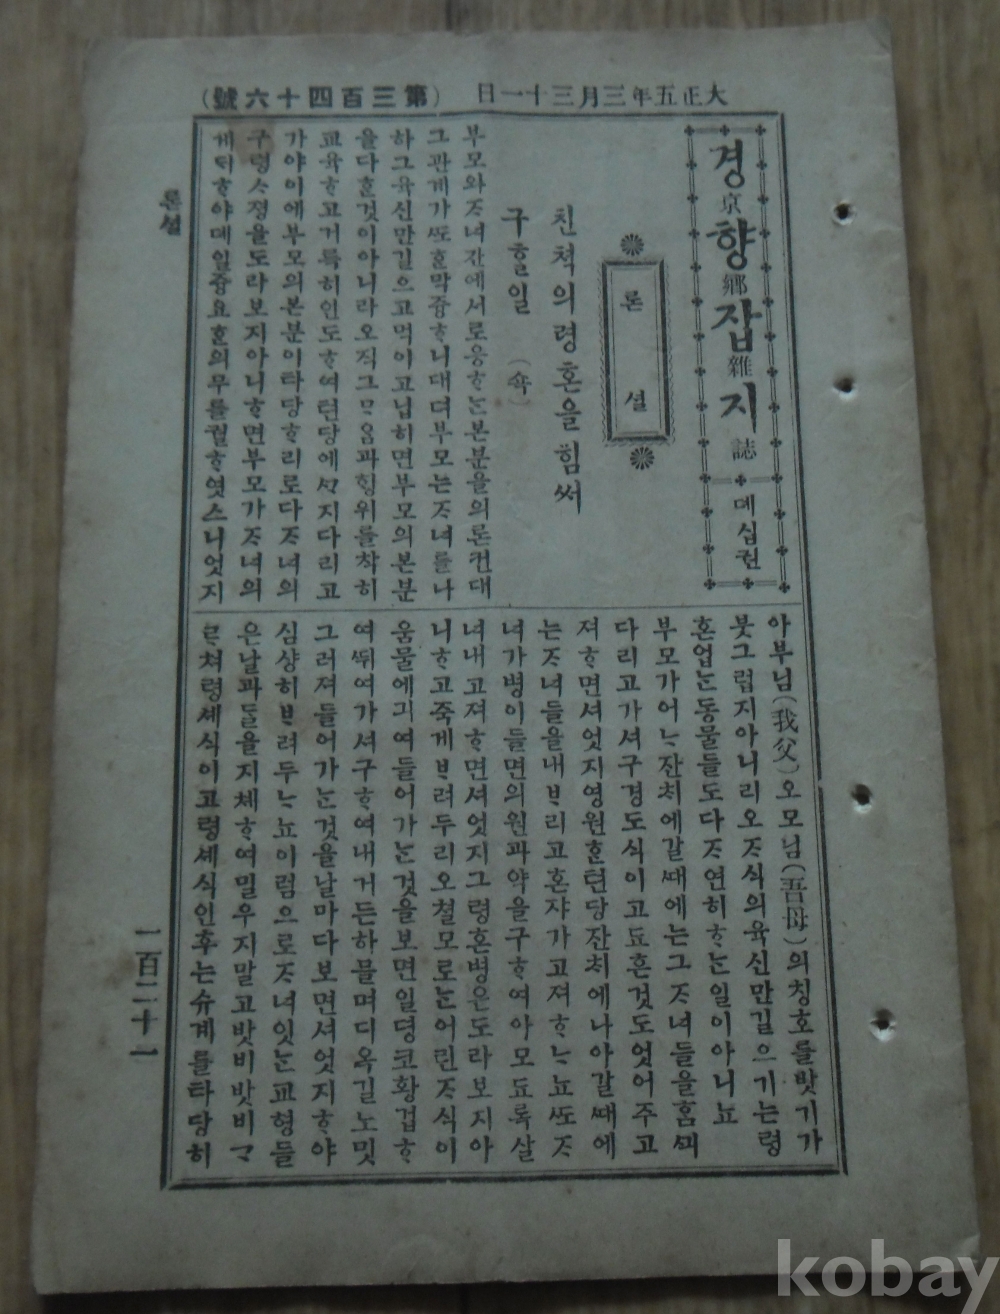 大正五年三月三十一日
(第三百四十六號)
경京향鄕잡雜지誌 뎨십권
론셜
친쳑의령혼을힘써
구ᄒᆞᆯ일 (쇽)
부모와ᄌᆞ녀간에서로응ᄒᆞᄂᆞᆫ본분을의론컨대
그관계가ᄯᅩᄒᆞᆫ막즁ᄒᆞ니대뎌부모ᄂᆞᆫᄌᆞ녀를나
하그육신만길으고먹이고닙히면부모의본분
을다ᄒᆞᆯ것이아니라오직그ᄆᆞ음과ᄒᆡᆼ위를착히
교육ᄒᆞ고거륵히인도ᄒᆞ여텬당에ᄭᆞ지다리고
가야이에부모의본분이타당ᄒᆞ리로다ᄌᆞ녀의
구령ᄉᆞ졍을도라보지아니ᄒᆞ면부모가ᄌᆞ녀의
게ᄃᆡᄒᆞ야뎨일즁요ᄒᆞᆫ의무를궐ᄒᆞ엿스니엇지
아부님(我父)오모님(吾母)의칭호를밧기가
붓그럽지아니리오ᄌᆞ식의육신만길으기는령
혼업ᄂᆞᆫ동물들도다ᄌᆞ연히ᄒᆞᄂᆞᆫ일이아니뇨
부모가어ᄂᆞ잔ᄎᆡ에갈ᄯᅢ에는그ᄌᆞ녀들을홈ᄭᅴ
다리고가셔구경도식이고됴흔것도엇어주고
져ᄒᆞ면셔엇지영원ᄒᆞᆫ텬당잔ᄎᆡ에나아갈ᄯᅢ에
는ᄌᆞ녀들을내ᄇᆞ리고혼쟈가고져ᄒᆞᄂᆞ뇨ᄯᅩᄌᆞ
녀가병이들면의원과약을구ᄒᆞ여아모됴록살
녀내고져ᄒᆞ면셔엇지그령혼병은도라보지아
니ᄒᆞ고죽게ᄇᆞ려두리오쳘모로ᄂᆞᆫ어린ᄌᆞ식이
움물에긔여들어가ᄂᆞᆫ것을보면일뎡코황겁ᄒᆞ
여ᄯᅱ여가셔구ᄒᆞ여내거든하믈며디옥길노밋
그러져들어가ᄂᆞᆫ것을날마다보면셔엇지ᄒᆞ야
심샹히ᄇᆞ려두ᄂᆞ뇨이럼으로ᄌᆞ녀잇ᄂᆞᆫ교형들
은날과ᄃᆞᆯ을지체ᄒᆞ여밀우지말고밧비밧비ᄀᆞ
ᄅᆞ쳐령셰식이고령셰식인후는슈계를타당히
론셜
一百二十一
kobay